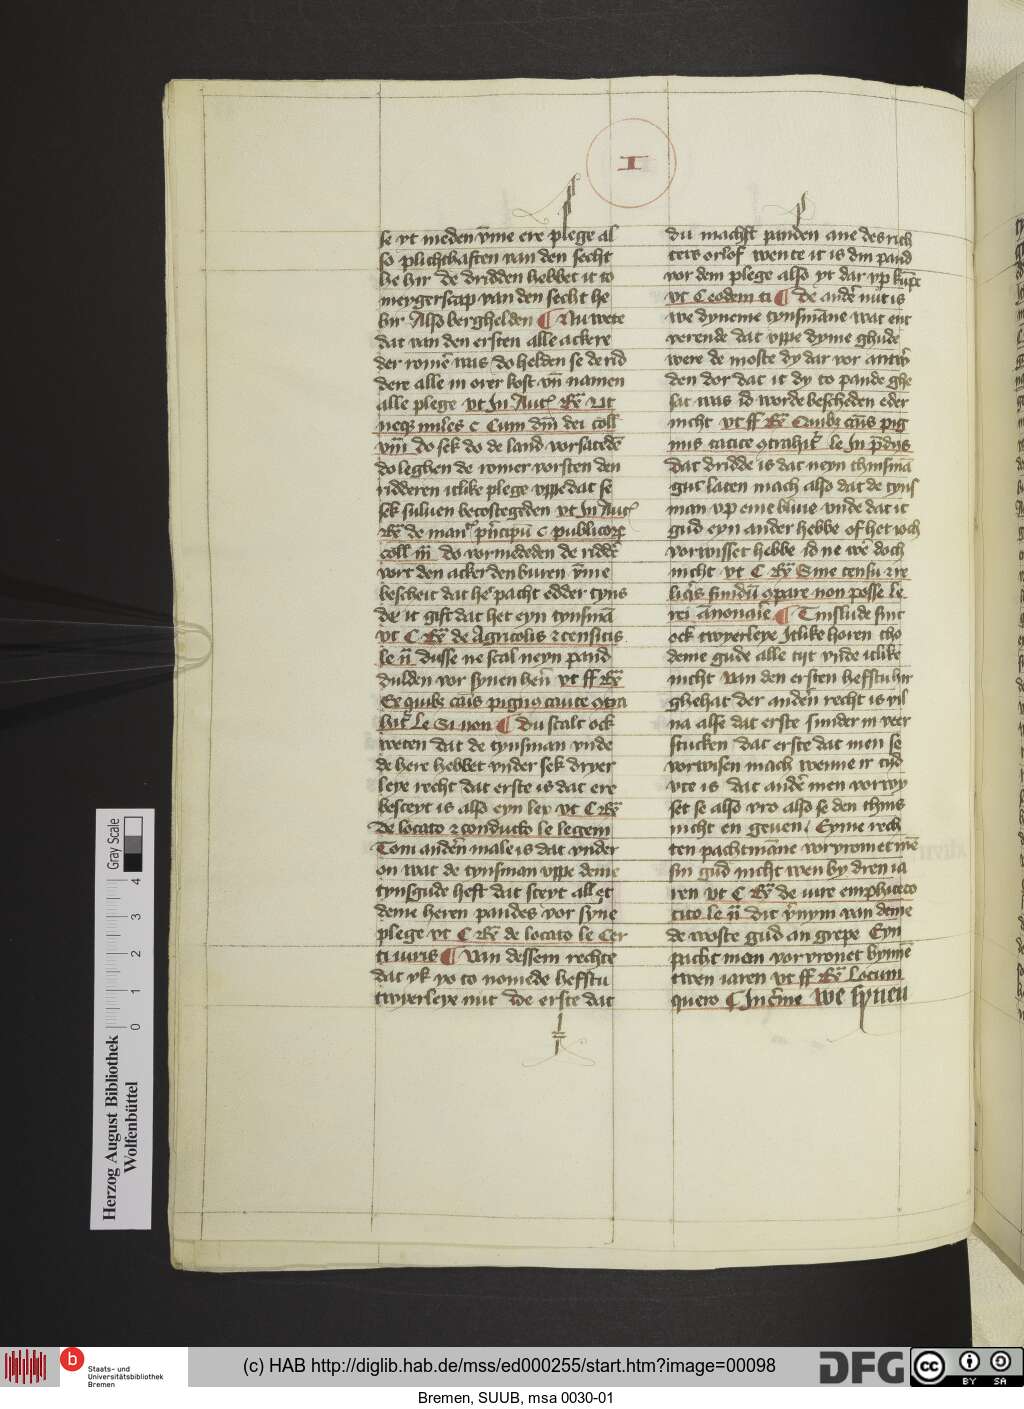 I
se vt meden v̄me ere plege al
so plichthaften van den secht
he hir de dridden hebbet it to
meygerscap van den secht he
hir Also berghelden ¶ Nu wete
dat van den ersten alle ackere
der romē was do helden se de rid
dere alle in orer kost vn̄ namen
alle plege vt In Aut
neqz miles C Cum dm̄ dei coll
viii do sek do de land vorsatedē
do leghen de romer vorsten den
ridderen itlike plege vppe dat se
sek suluen becostegeden vt In Aut
de man pncipū C publicor
coll iii do vormededen de riddē
vort den acker den buren v̄me
bescheit dat he pacht edder tyns
der it gift dat het eyn tynsmā
vt C Rē de Agricolis z censitis
le ii dusse ne scal neyn pand
dulden vor synen hern vt ff
Ex quibz cāus pignus tacite
hit le Si non ¶ Du scalt ock
weten dat de tynsman vnde
de here hebbet vnder sek dryer
leye recht dat erste is dat ere
besceyt is also eyn lex vt C Rē
de locato z conducto le legem
Tom andern male is dat vnder
on wat de tynsman vppe deme
tynsgude heft dat steyt allet
deme heren pandes vor syne
plege vt C Rē de locato le Cer
ti iuris ¶ Van dessem rechte
dat yk yo to nomede hefstu
twyerleye nut De erste dat
du machst panden ane des rich
ters orlof wente it is din pand
vor dem plege also yt dar vp
vt C eodem ti ¶ De andē nut is
we dyneme tynsmāne wat ent
verende dat vppe dyme ghude
were de moste dy dar vor antw
den dor dat it dy to pande ghe
sat was id worde bescheden eder
nicht vt ff Rē Quibz cāus pig
nus tacite le In
Dat dridde is dat neyn thinsmā
gut laten mach also dat de tyns
man vp eme bliue vnde dat it
gud eyn ander hebbe of het och
vorwisset hebbe id ne we doch
nicht vt C Rē Sine censu z re
liqs fundū parare non posse le
rei ānonarie ¶ Tinslude sint
ock twyerleye Itlike horen tho
deme gude alle tijt vnde itlike
nicht Van den ersten hefstu hir
ghehat der anden recht is vil
na alse dat erste sunder in veer
stucken dat erste dat men se
vorwisen mach wenne ir tyd
vte is dat andē men vorwy
set se also vro also se den thins
nicht en geuen Eyme rech
ten pachtmāne vorvromet mē
sin gud nicht wen by dren ia
ren vt C Rē de iure emphiteo
tito le ii dit vnym van deme
de woste gud an grepe Eyn
pacht man vorvromet
twen iaren vt ff Rē Locum
quero C we synen
Herzog August Bibliothek
Wolfenbüttel
Gray Scale
0 1 2 3 4
b
Staats- und
Universitätsbibliothek
Bremen
(c) HAB http://diglib.hab.de/mss/ed000255/start.htm?image=00098
DFG
cc
BY SA
Bremen, SUUB, msa 0030-01